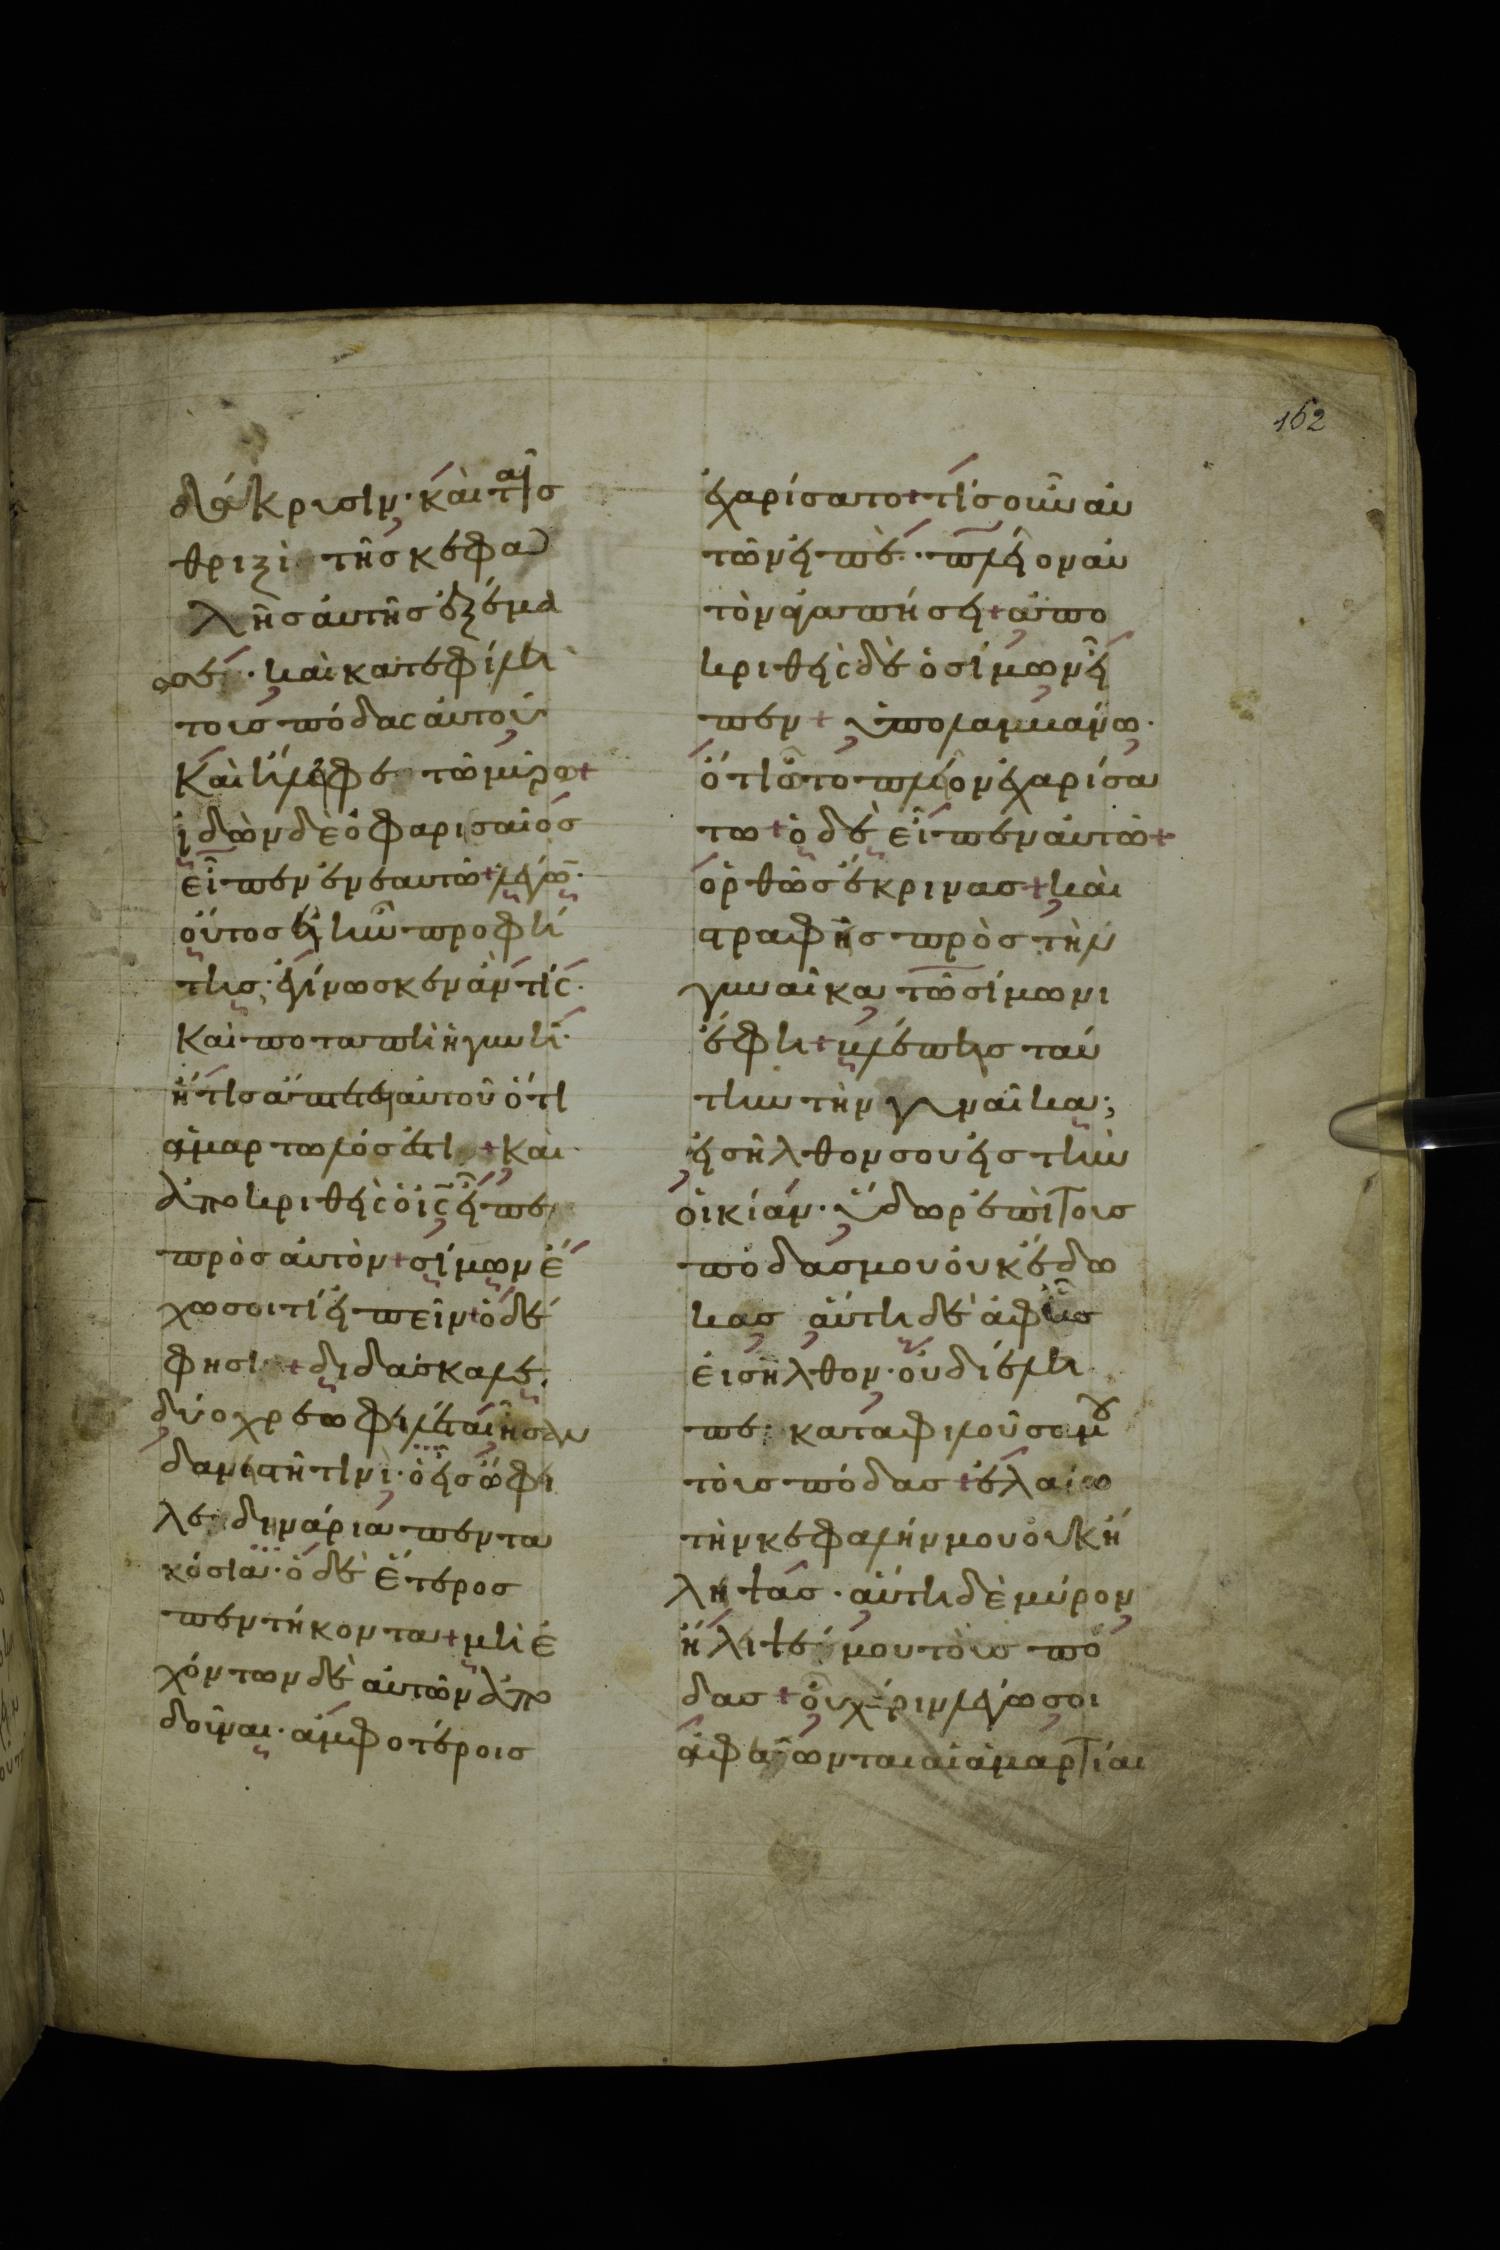 162
δάκρυσιν· καὶ ταῖσ
θριξὶ τῆσ κεφα
λῆσ ἀυτῆσ ἐξέμα
σε· καὶ κατεφίλη
τουσ πόδας ἀυτοῦ
καὶ ἤλειφε τῶ μύρω +
ἰδὼν δὲ ὁ φαρισαῖόσ
εἶπεν ἐν εαυτῶ + λέγων·
οὗτοσ εἰ ἦν προφή
τησ· ἐγίνωσκεν ἂν τίς·
καὶ ποταπὴ ἡ γυνὴ·
ἥτισ ἅπτεται αὐτοῦ ὅτι
ἁμαρτωλόσ ἐστι + και
ἀποκριθεὶς ὁ ις εἶπε
πρὸσ ἀυτὸν + σίμων ἔ
χω σοι τί εἰπεῖν + ὁ δέ
φησι + διδάσκαλε,
δύο χρεωφειλέται ἦσαν
δανιστῆ τινι· ὁ εἷσ ὤφι
λε δηνάρια πεντα
κόσια· ὁ δὲ ἕτεροσ
πεντήκοντα + μὴ ἐ
χόντων δὲ ἀυτῶν ἀπο
δοῦναι· ἀμφοτέροισ
ἐχαρίσατο + τίσ οὖν ἀυ
τῶν εἰπὲ· πλεῖον ἀυ
τὸν ἀγαπήσει + ἀπο
κριθεὶς δὲ ὁ σίμων εἶ
πεν + ὑπολαμβάνω·
ὅτι ὧ το πλεῖον ἐχαρίσα
τω + ὁ δὲ εἶπεν ἀυτῶ +
ὀρθῶσ ἔκρινασ + καὶ
στραφεῖσ πρὸσ τὴν
γυναῖκα τῶ σίμωνι
ἔφη + βλέπεισ ταύ
την τὴν γυναῖκα;
εἰσῆλθον σου εἰσ τὴν
οἰκίαν· ὕδωρ ἐπὶ τουσ
πόδασ μου ὀυκ ἔδω
κασ ἀύτη δὲ ἀφ ἧσ
ἐισῆλθον· ὀυ διέλη
πε καταφιλοῦσα μου
τοὺσ πόδασ + ἐλαίω
τὴν κεφαλήν μου ὀυκ ἤ
λητασ· ἀύτη δὲ μύρον
ἤλιτέ μου τοὺσ πό
δασ + ὁῦ χάριν λέγω σοι
ἀφέωνται αἱ ἁμαρτίαι